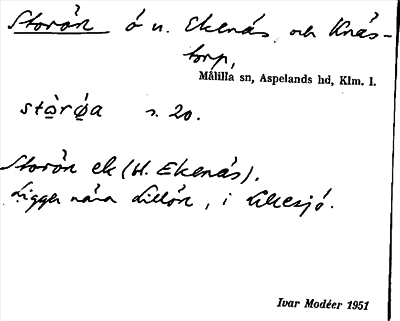 Storön ö u. Ekenäs och Knäs-
torp,
Målilla sn, Aspelands hd, Klm. l.
stɷ̀rǿa s. 20.
Storön ek (H. Ekenäs).
Ligger nära Lillön, i
Ivar Modéer 1951